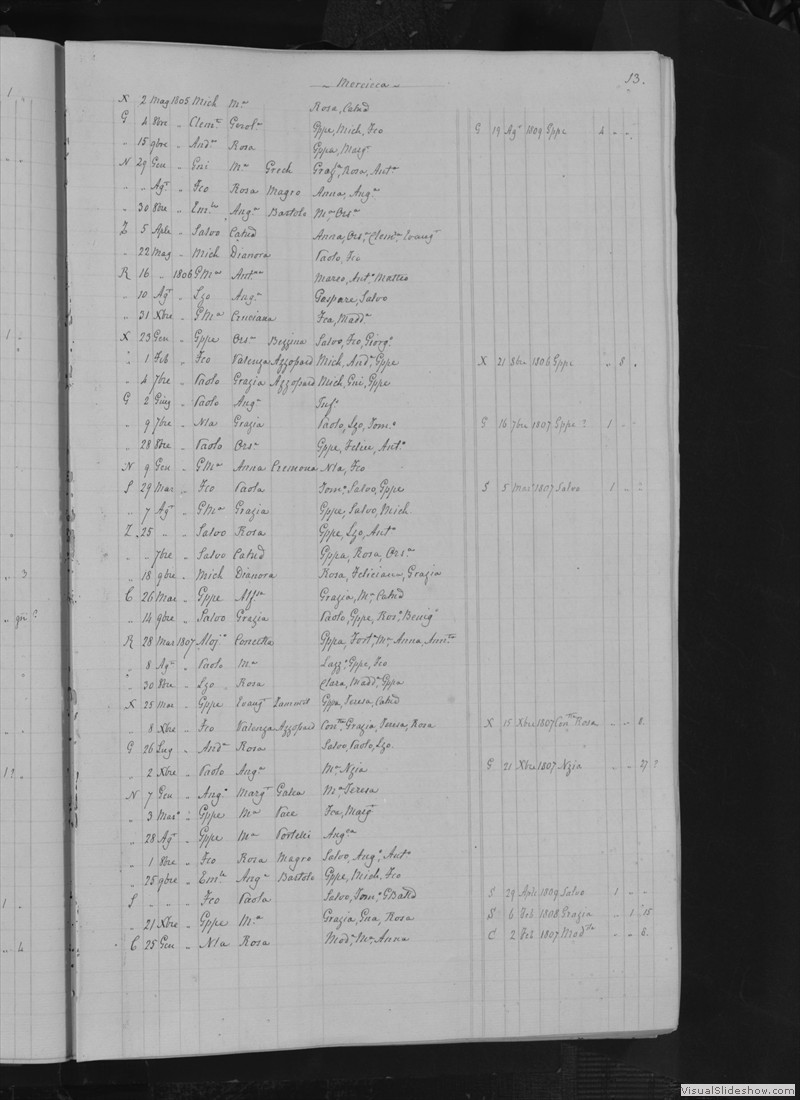 13.
Mercieca
X 2 Mag 1805 Mich Ma Rosa, Catnd
G 4 8bre " Clemte Gerola Gppe, Mich, Fco G 19 Agt 1809 Gppe 4 " "
" 15 9bre " Anda Rosa Gppa, Margt
N 29 Gen " Gni Ma Grech Graza, Rosa, Anta
" " Agt " Fco Rosa Magro Anna, Anga
" 30 8bre " Emle Anga Bartolo Ma Orsa
Z 5 Aple " Salvo Catnd Anna, Orsa, Clemta, Evangt
" 22 Mag " Mich Dianora Paolo, Fco
R 16 " 1806 GMa Antna Marco, Anto Matteo
" 10 Agt " Lzo Anga Gaspare, Salvo
" 31 Xbre " GMa Cruciana Fca, Madda
X 23 Gen " Gppe Orsa Bezzina Salvo, Fco, Giorgo
" 1 Feb " Fco Valenza Azzopard Mich, Anda, Gppe X 21 8bre 1806 Gppe " 8 "
" 4 7bre " Paolo Grazia Azzopard Mich, Gni, Gppe
G 2 Giug " Paolo Anga Info
" 9 7bre " Nla Grazia Paolo, Lzo, Tomo G 16 7bre 1807 Gppe ? 1 " "
" 28 8bre " Paolo Orsa Gppe, Felice, Anto
N 9 Gen " GMa Anna Cremona Nla, Fco
S 29 Mar " Fco Paola Tomo, Salvo, Gppe S 5 Maro 1807 Salvo 1 " 2
" 7 Agt " GMa Grazia Gppe, Salvo, Mich
Z 25 " " Salvo Rosa Gppe, Lzo, Anto
" " 7bre " Salvo Catnd Gppa, Rosa, Orsa
" 18 9bre " Mich Dianora Rosa, Feliciana, Grazia
C 26 Mar " Gppe Grazia, Ma Catnd
" 14 9bre " Salvo Grazia Paolo, Gppe, Roso Benigo
R 28 Mar 1807 Alojo Concetta Gppa, Forta, Ma Anna, Annta
" 8 Agt " Paolo Ma Lazzo, Gppe, Fco
" 30 8bre " Lzo Rosa Clara, Madda, Gppa
X 25 Mar " Gppe Evangt Sammut Gppa, Teresa, Catnd
" 8 Xbre " Fco Valenza Azzopard Conta, Grazia, Teresa, Rosa X 15 Xbre 1807 Conta Rosa " " 8
G 26 Lug " Anda Rosa Salvo, Paolo, Lzo
" 2 Xbre " Paolo Anga Ma Nzia G 21 Xbre 1807 Nzia " " 27 ?
N 7 Gen " Ango Margt Galea Ma Teresa
" 3 Maro " Gppe Ma Pace Fca, Margt
" 28 Agt " Gppe Ma Portelli Angca
" 1 8bre " Fco Rosa Magro Salvo, Ango, Anto
" 25 9bre " Emle Anga Bartolo Gppe, Mich, Fco
S " " " Fco Paola Salvo, Tomo, GBatta S 29 Aple 1809 Salvo 1 " "
" 21 Xbre " Gppe Ma Grazia, Gna, Rosa S 6 Feb 1808 Grazia " 1 15
C 25 Gen " Nla Rosa Moda, Ma Anna C 2 Feb 1807 Modta " " 8
VisualSlideshow.com